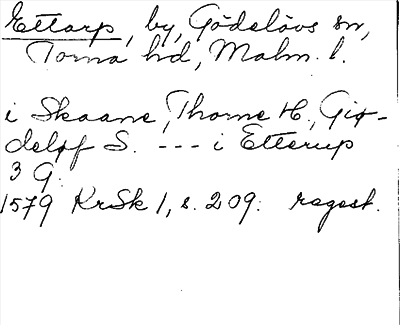 Ettarp, by, Gödelövs sn,
Torna hd, Malm. l.
i Skaane, Thorne H., Giø-
deløf S. --- i Etterup
3 G.
1579 KrSk 1, s. 209. regest.